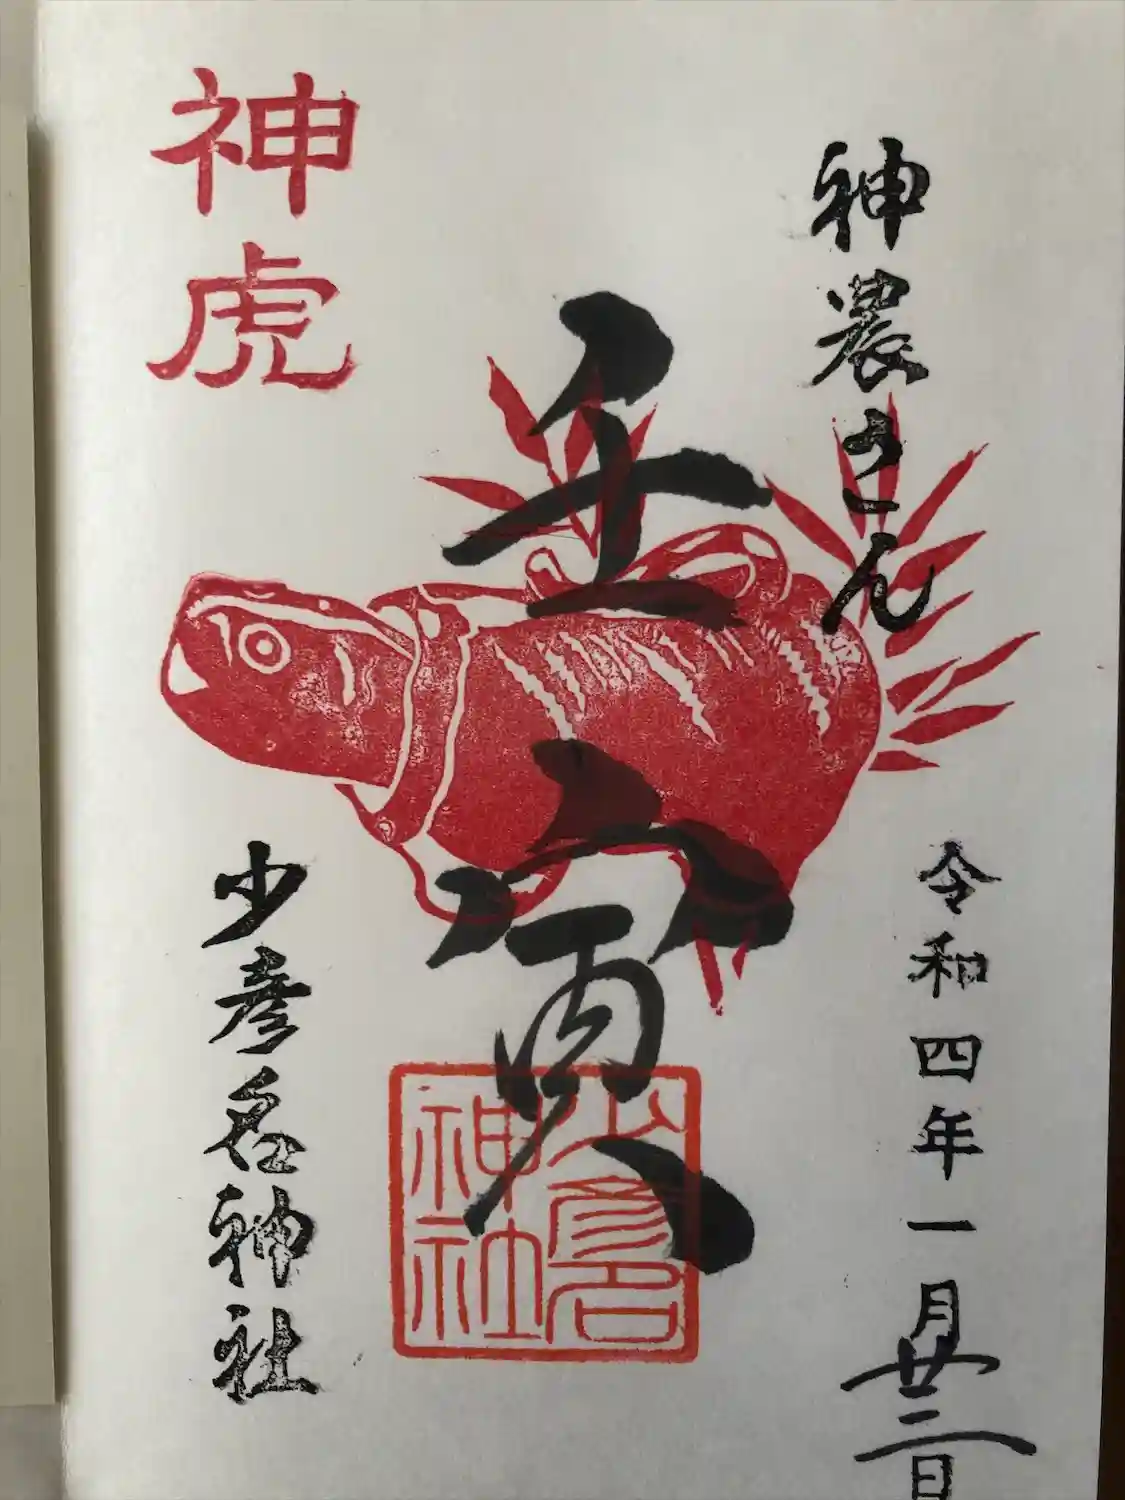 神農さん
令和四年一月廿三日
壬寅
少彦名神社
神虎
少彦名神社